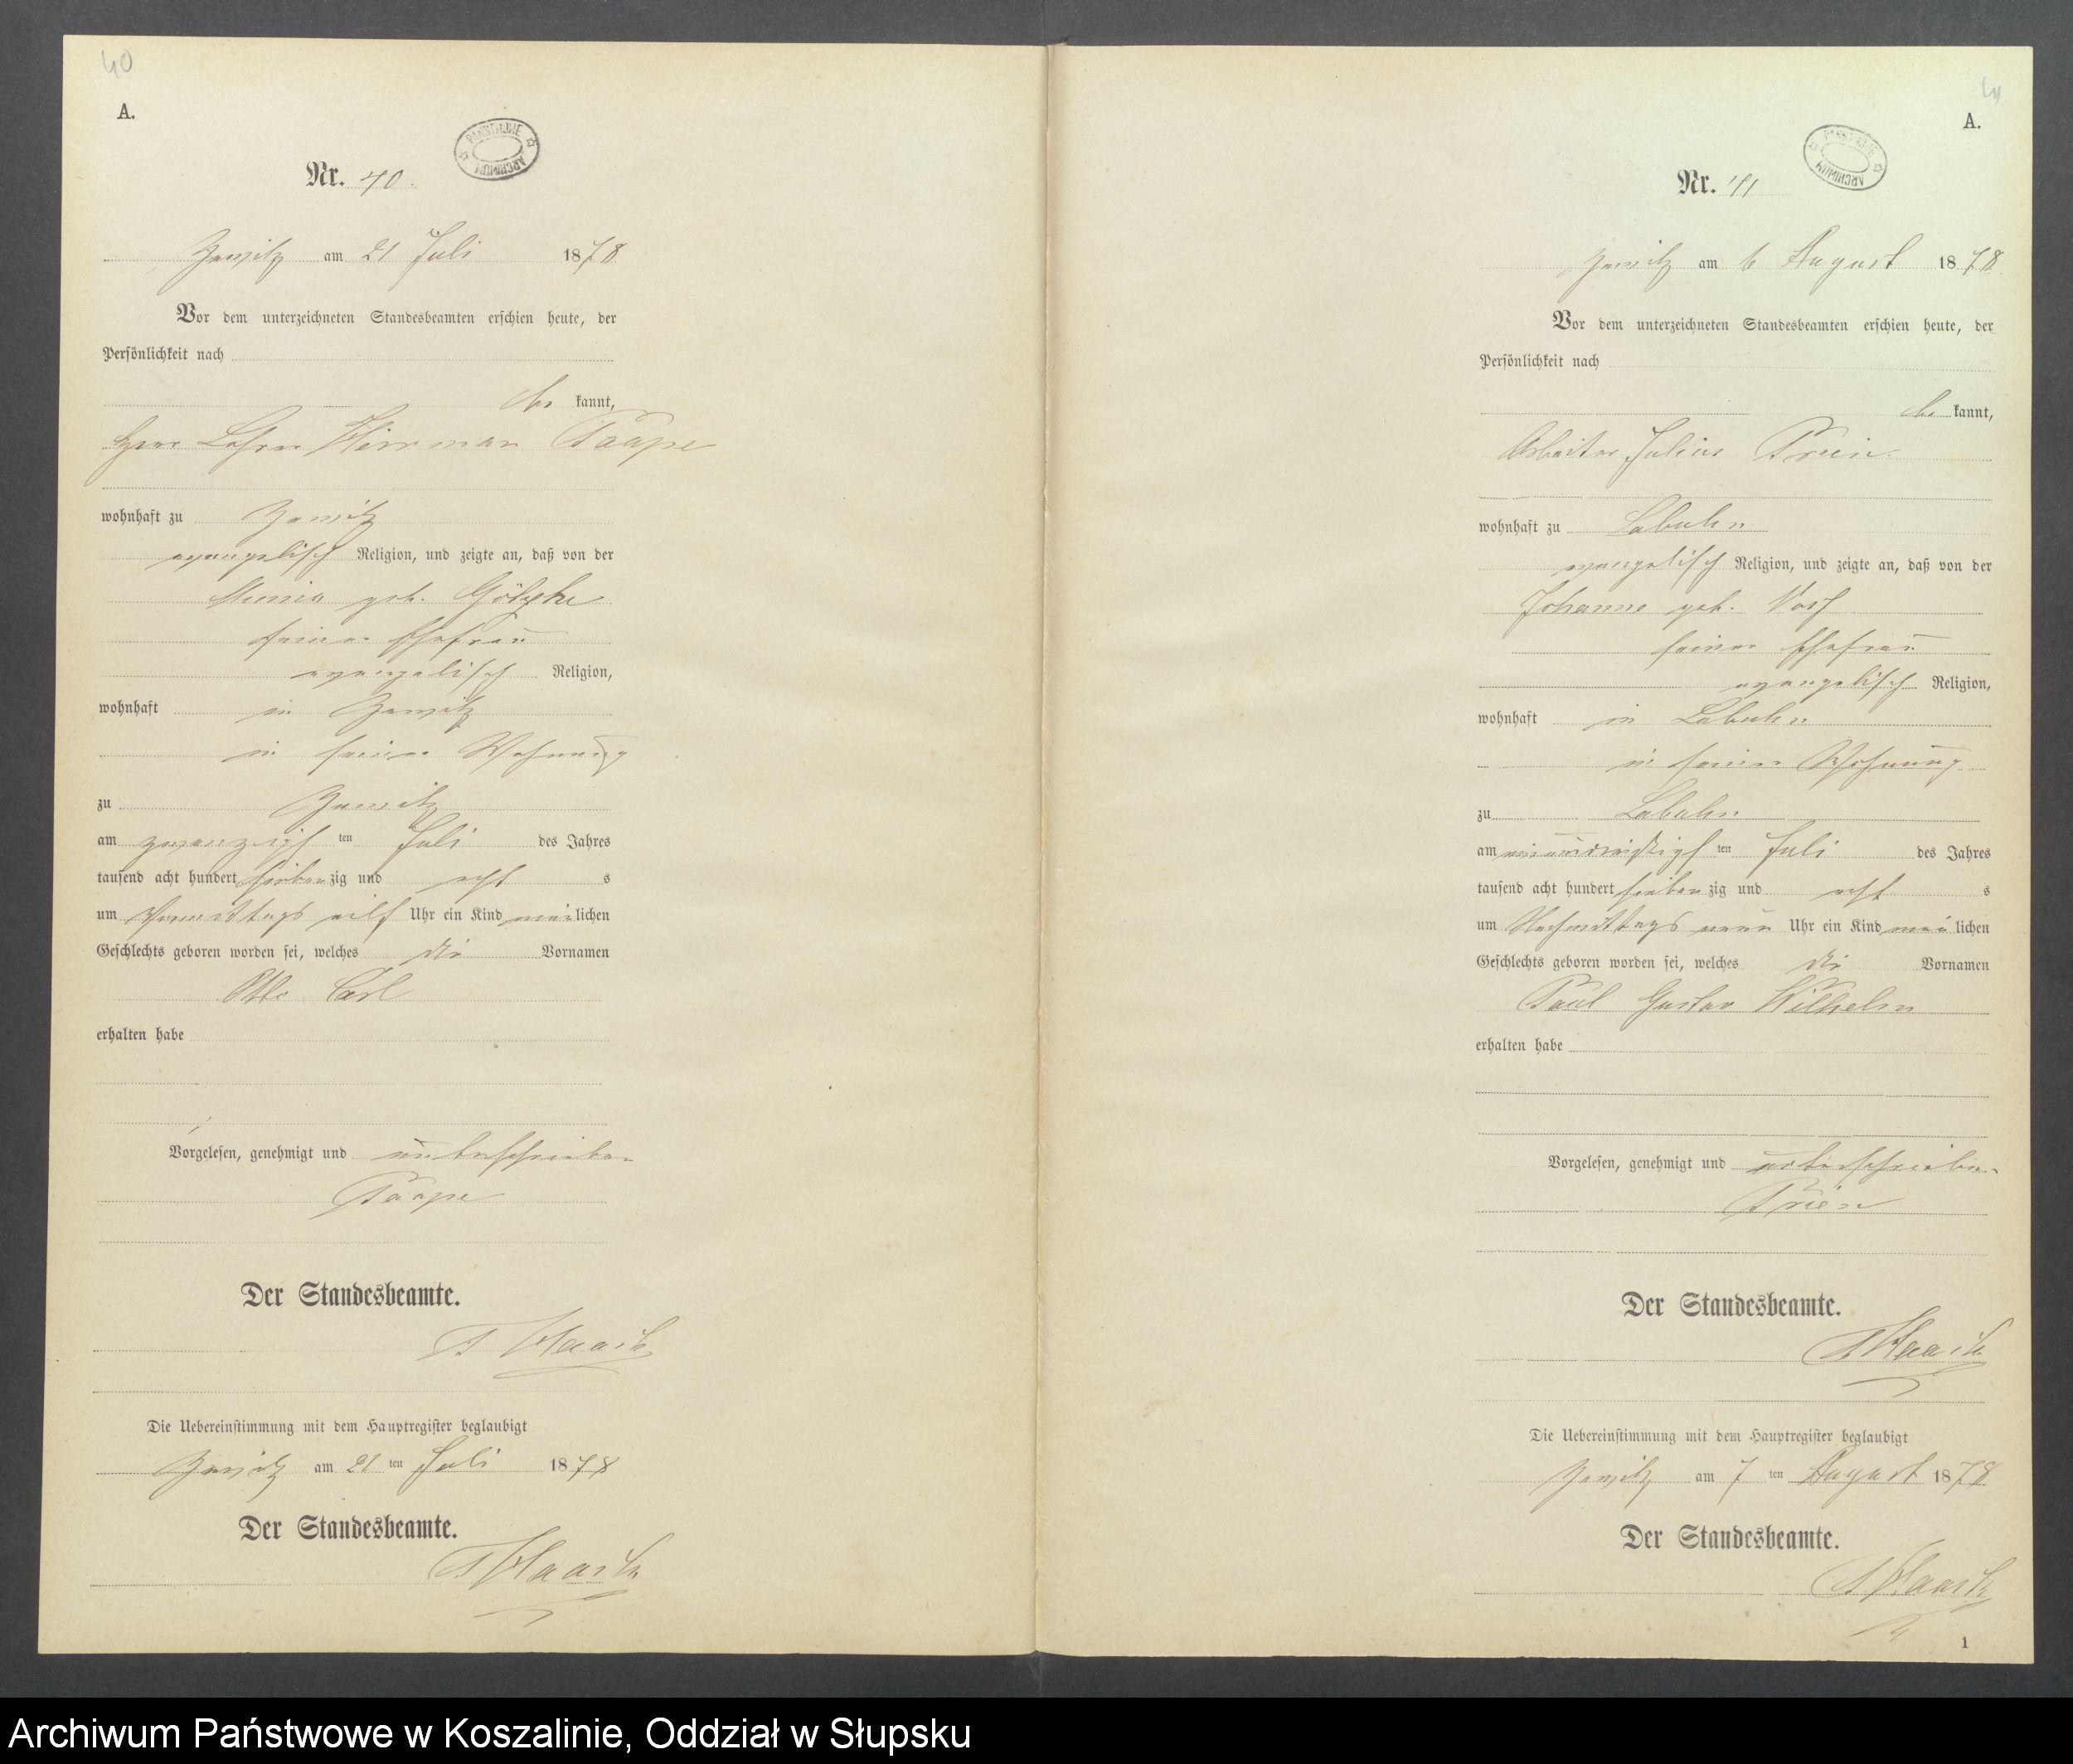 40
A.
PAŃSTWOWE ARCHIWUM
Nr. 40.
Zewitz am 21 Juli 1878
Vor dem unterzeichneten Standesbeamten erschien heute, der
Persönlichkeit nach
be kannt,
Herr Lehrer Herrman Paape
wohnhaft zu Zewitz
evangelisch Religion, und zeigte an, daß von der
geb.
seiner Ehefrau
evangelisch Religion,
wohnhaft in Zewitz
in seiner Wohnung
zu Zewitz
am zwanzigs ten Juli des Jahres
tausend acht hundert sieben zig und acht s
um Vormittags elf Uhr ein Kind män lichen
Geschlechts geboren worden sei, welches die Vornamen
Otto Carl
erhalten habe
Vorgelesen, genehmigt und unterschrieben
Paape
Der Standesbeamte.
Die Uebereinstimmung mit dem Hauptregister beglaubigt
Zewitz am 21 ten Juli 1878
Der Standesbeamte.
41
A.
PAŃSTWOWE ARCHIWUM
Nr. 41
Zewitz am 6 August 1878
Vor dem unterzeichneten Standesbeamten erschien heute, der
Persönlichkeit nach
be kannt,
Arbeiter Julius Prien
wohnhaft zu Labuhn
evangelisch Religion, und zeigte an, daß von der
Johanne geb. Voss
seiner Ehefrau
evangelisch Religion,
wohnhaft in Labuhn
in seiner Wohnung
zu Labuhn
am einunddreißigs ten Juli des Jahres
tausend acht hundert sieben zig und acht s
um Nachmittags neun Uhr ein Kind män lichen
Geschlechts geboren worden sei, welches die Vornamen
Paul Gustav Wilhelm
erhalten habe
Vorgelesen, genehmigt und unterschrieben
Prien
Der Standesbeamte.
Die Uebereinstimmung mit dem Hauptregister beglaubigt
Zewitz am 7 ten August 1878
Der Standesbeamte.
1
Archiwum Państwowe w Koszalinie, Oddział w Słupsku